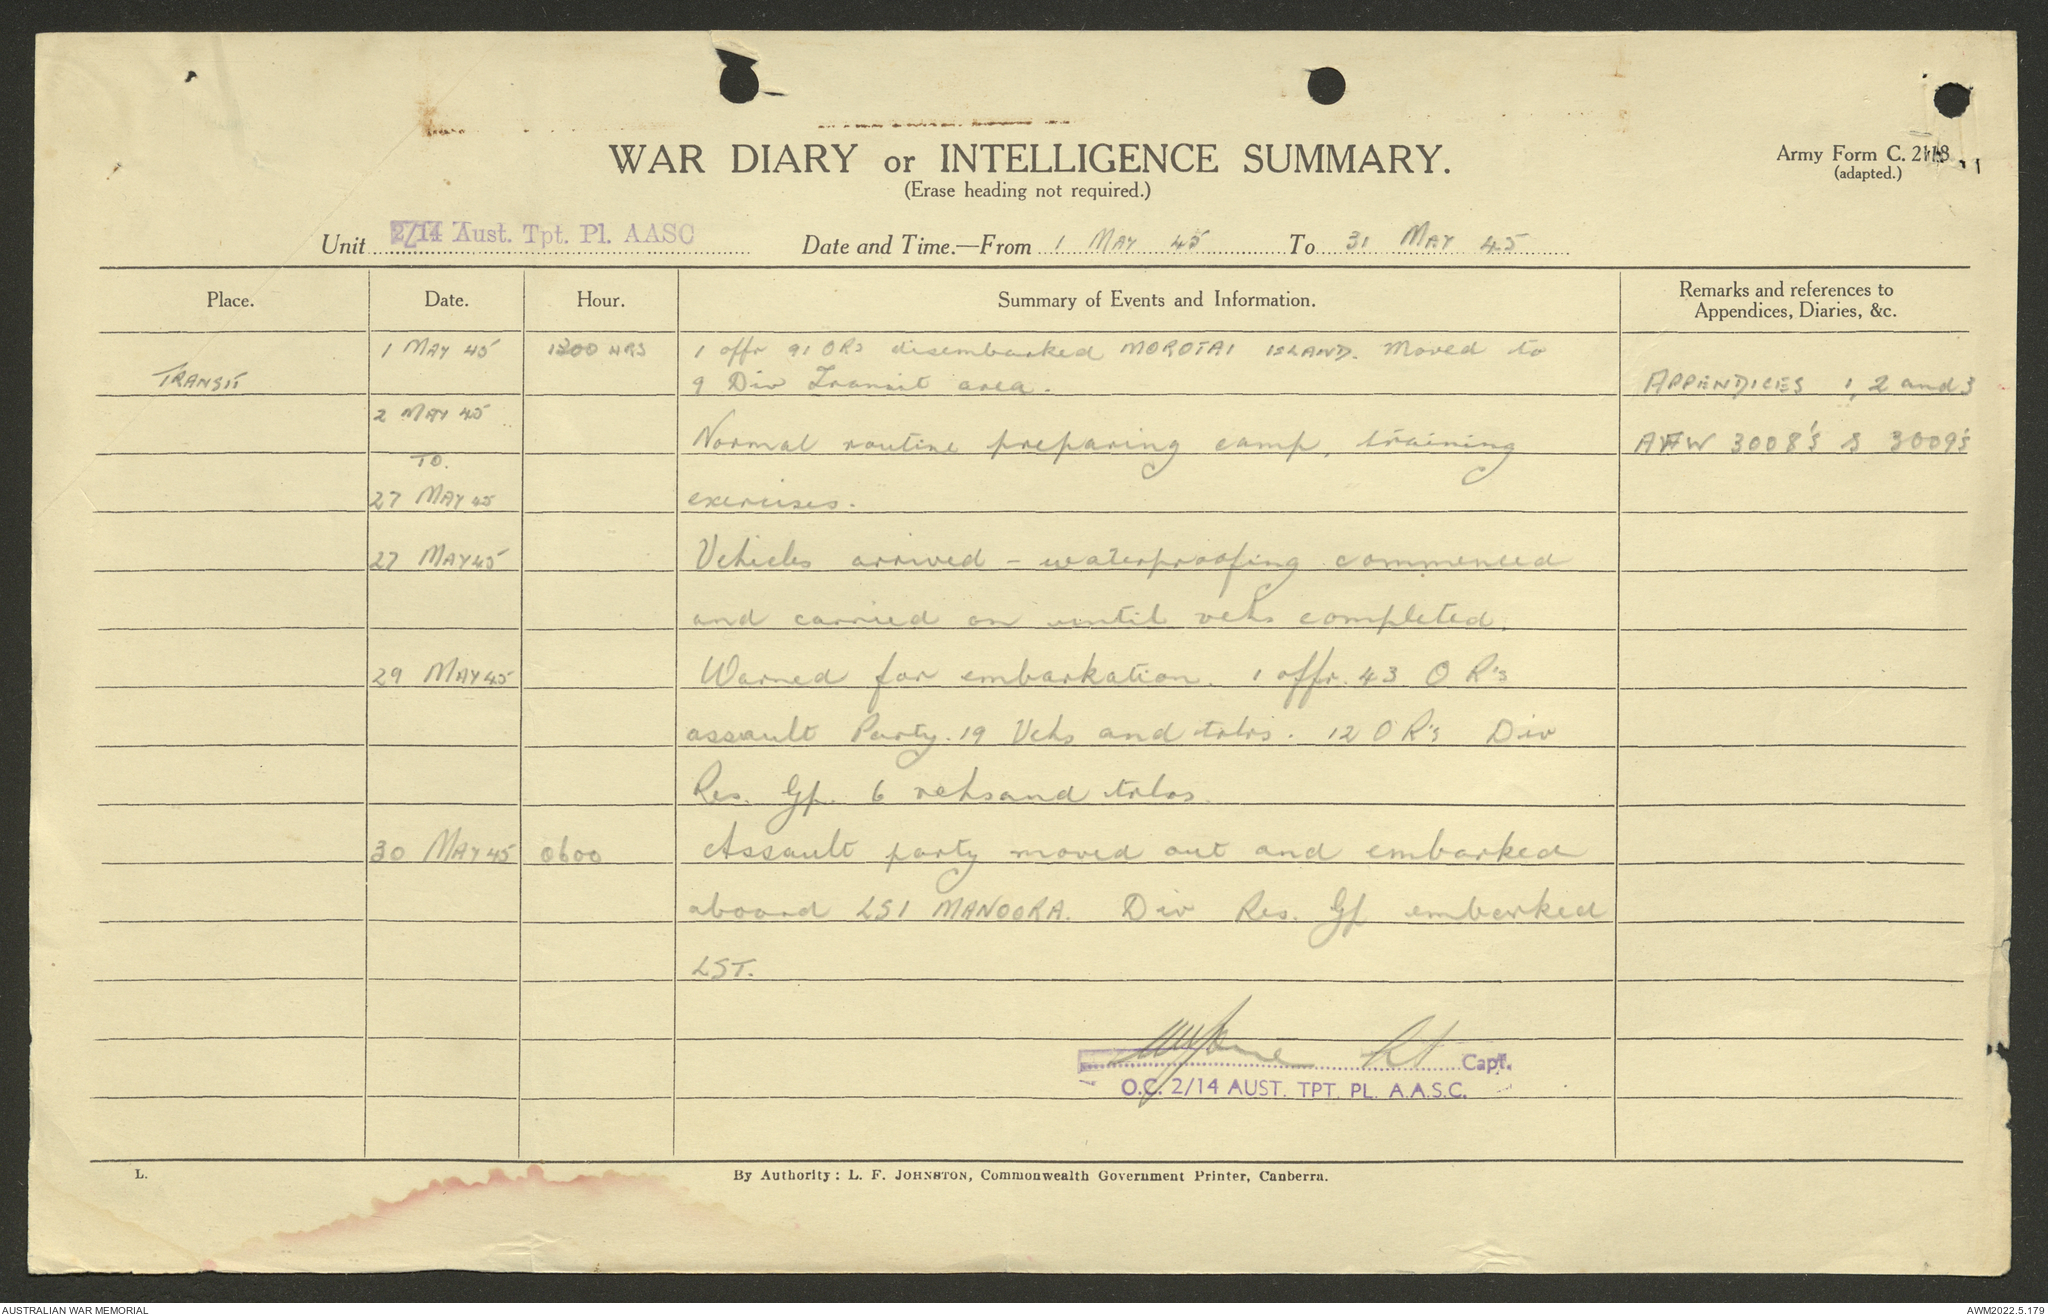 WAR DIARY or INTELLIGENCE SUMMARY.
(Erase heading not required.)
Army Form C. 2118
(adapted.)
Unit 2/14 Aust. Tpt. Pl. AASC
Date and Time.—From 1 MAY 45 To 31 MAY 45
Place. Date. Hour. Summary of Events and Information. Remarks and references to
Appendices, Diaries, &c.
1 MAY 45 1200 HRS 1 offr 91 ORs disembarked MOROTAI ISLAND. Moved to
TRANSIT 9 Div Transit area. APPENDICES 1, 2 and 3
2 MAY 45
Normal routine preparing camp, training AFW 3008's & 3009's
TO.
27 MAY 45 exercises.
27 MAY 45 Vehicles arrived - waterproofing commenced
and carried on until vehs completed.
29 MAY 45 Warned for embarkation. 1 offr. 43 O R's
assault Party. 19 Vehs and trlrs. 12 O R's Div
Res. Gp. 6 vehs and trlrs.
30 MAY 45 0600 Assault party moved out and embarked
aboard LSI MANOORA. Div Res. Gp embarked
LST.
Lt Capt.
O.C. 2/14 AUST. TPT. PL. A.A.S.C.
L. By Authority: L. F. JOHNSTON, Commonwealth Government Printer, Canberra.
AUSTRALIAN WAR MEMORIAL AWM2022.5.179